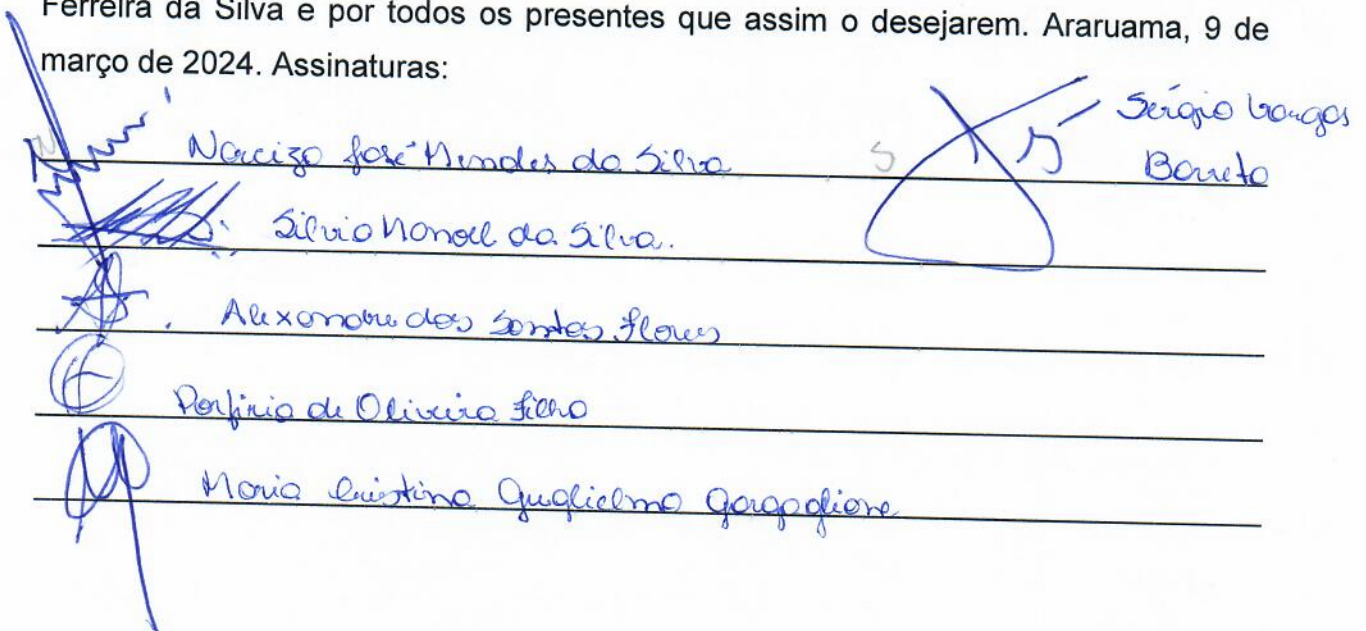 Ferreira da Silva e por todos os presentes que assim o desejarem. Araruama, 9 de
março de 2024. Assinaturas:
Sérgio Vargas
Narcizo José Mendes da Silva
Barreto
Silvio Manoel da Silva.
Alexandre dos Santos Flores
Porfirio de Oliveira Filho
Maria Cristina Guglielmo Gargaglione